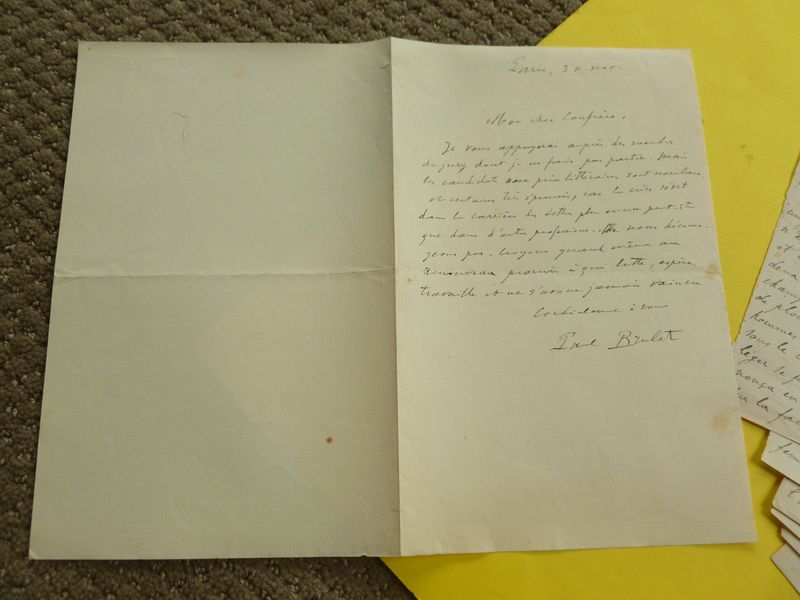 Paris, 30 nov.
Mon cher Confrère,
Je vous appuyerai auprès des membres
du jury dont je ne fais pas partie. Mais
les candidats aux prix littéraires sont nombreux,
et certains très éprouvés, car la crise sévit
dans la carrière des lettres plus encore peut-être
que dans d'autres professions. Ne nous découra-
geons pas. Croyons quand même au
renouveau promis à qui lutte, espère,
travaille et ne s'avoue jamais vaincu
Cordialement à vous
Paul Brulat
et
de plo
hommes
sous le
léger se f
en
la fac